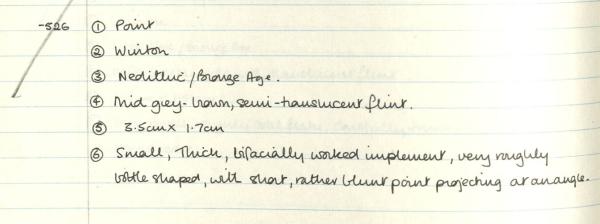 -526 ① Point
② Winton
③ Neolithic/Bronze Age.
④ Mid grey-brown, semi-translucent flint.
⑤ 3.5cm x 1.7cm
⑥ Small, Thick, bifacially worked implement, very roughly
bottle shaped, with short, rather blunt point projecting at an angle.